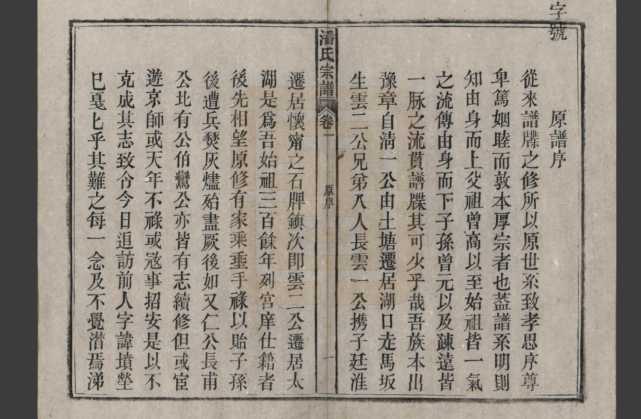 字號
原譜序
從來譜牒之修所以原世系致孝思序尊
卑篤姻睦而敦本厚宗者也葢譜系明則
知由身而上父祖曾高以至始祖皆一氣
之流傳由身而下子孫曾元以及疎遠皆
一脉之流貫譜牒其可少乎哉吾族本出
豫章自清一公由土塘遷居湖口走馬坂
生雲二公兄弟八人長雲一公携子廷淮
潘氏宗譜 卷一 原序 一
遷居懷甯之石牌鎮次即雲二公遷居太
湖是爲吾始祖三百餘年列宮庠仕籍者
後先相望原修有家乘垂手祿以貽子孫
後遭兵燹灰燼殆盡厥後如又仁公長甫
公北有公伯鸞公亦皆有志續修但或宦
遊京師或天年不祿或宼事招安是以不
克成其志致令今日追訪前人字諱墳塋
已戛匕乎其難之每一念及不覺潸焉涕